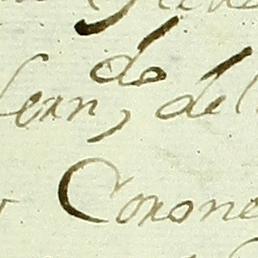 do
fern, del
Corone